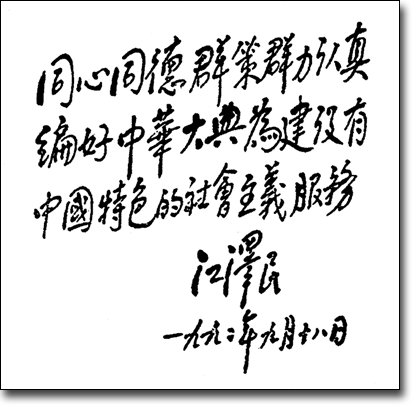 同心同德群策群力认真
编好中華大典為建设有
中國特色的社會主義服務
江澤民
一九九二年九月十八日